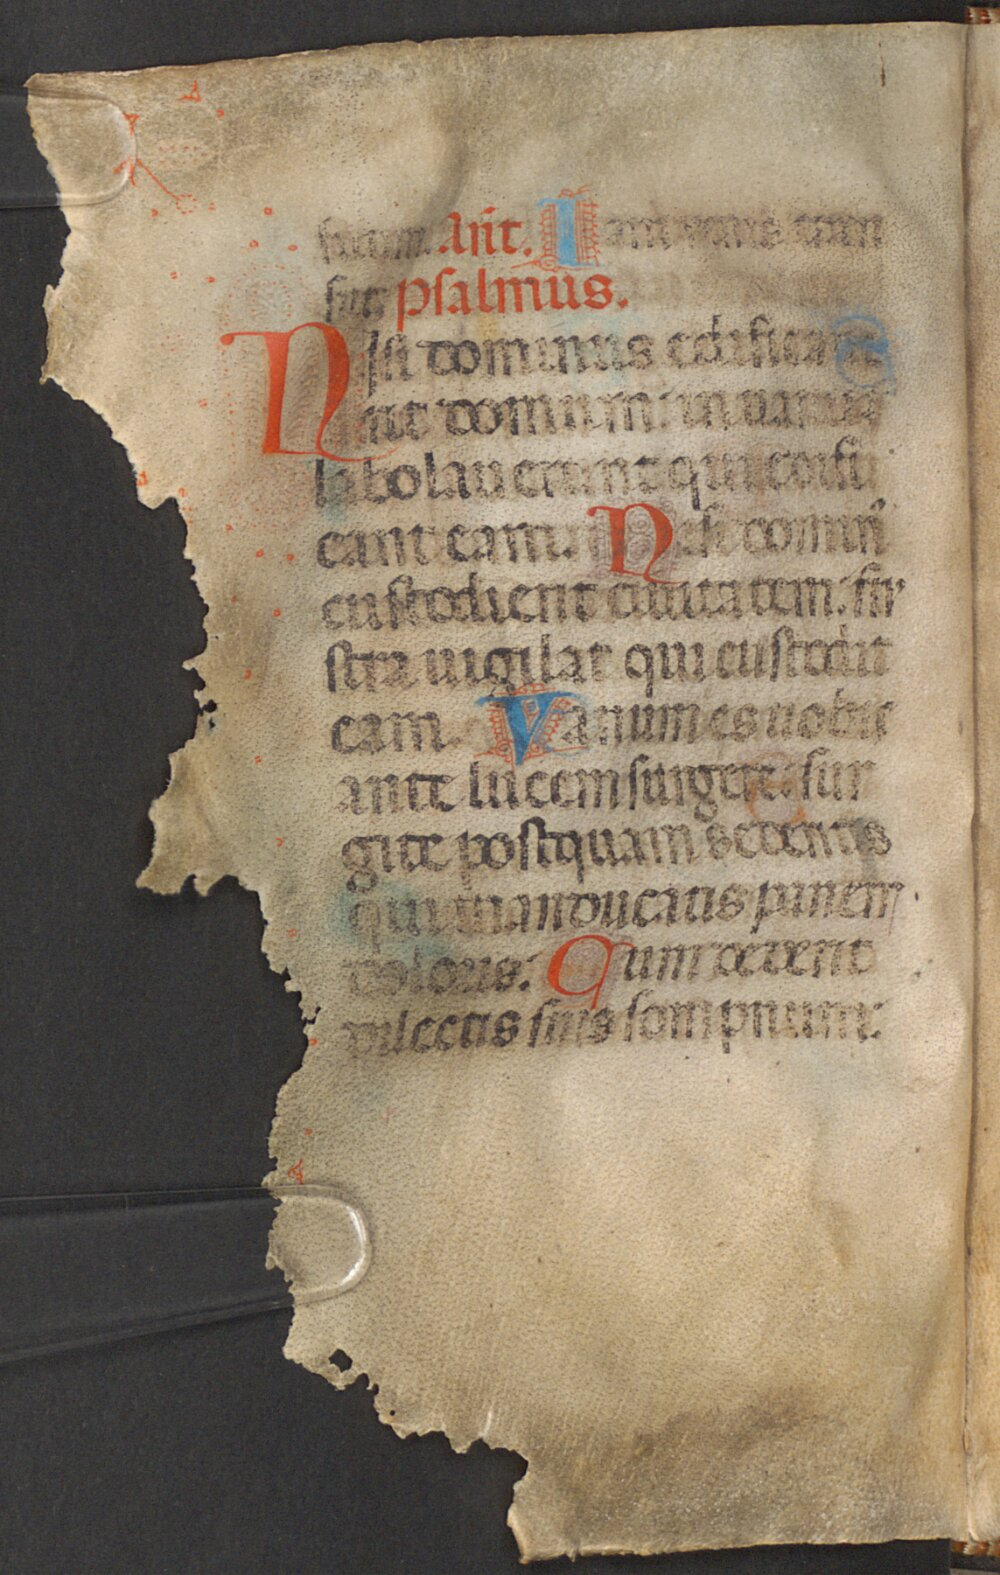 suum. Añt. Iam yems tran
siit. psalmus.
Nisi dominus edificaue
rit domum: in uanum
labolauerunt qui edifi
cant eam. Nisi domin
custodierit ciuitatem: fru
stra uigilat qui custodit
eam. Vanum est uobis
ante lucem surgere: sur
gite postquam sederitis
qui manducatis panem
doloris. Cum dederit
dilectis suis sompnum: